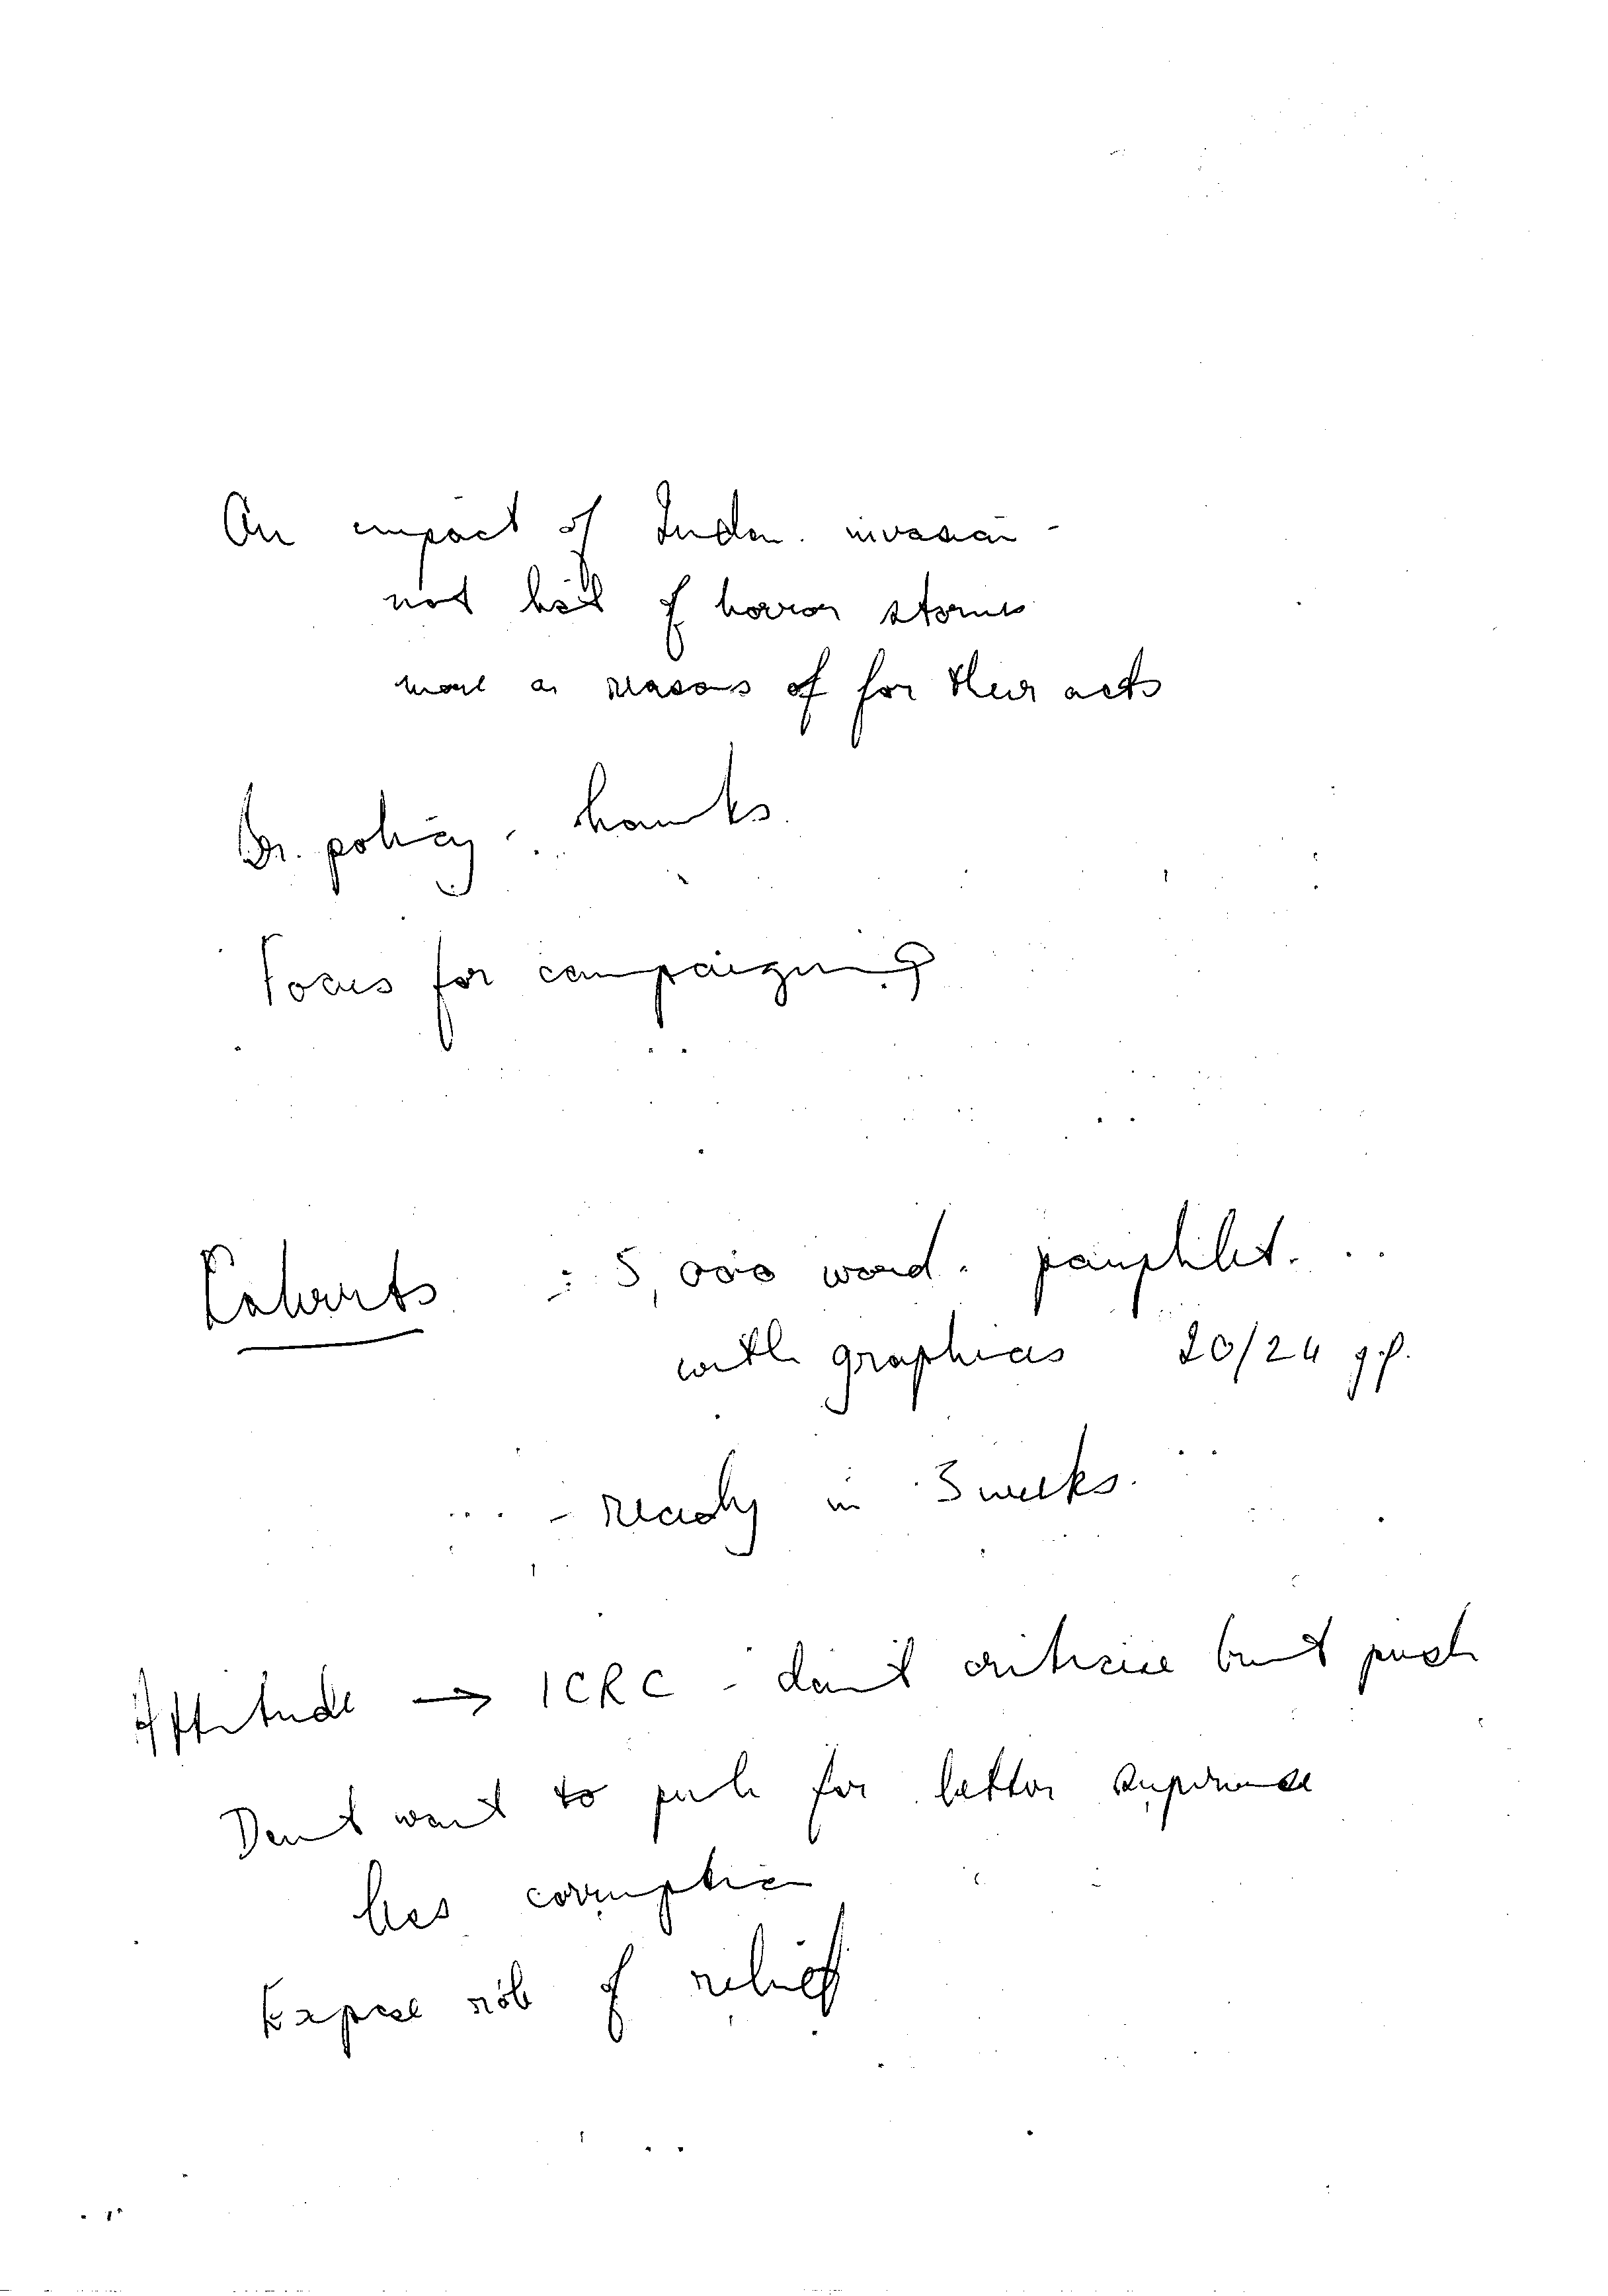 On impact of Indon. invasion -
not list of horror stories
more on reasons of for their acts
Br. policy - hawks.
Focus for campaigning
: 5,000 word. pamphlet.
with graphics 20/24 pp.
- ready in 3 weeks.
Attitude → ICRC - don't criticise but push
Don't want to push for better
less corruption
Expose rôle of relief